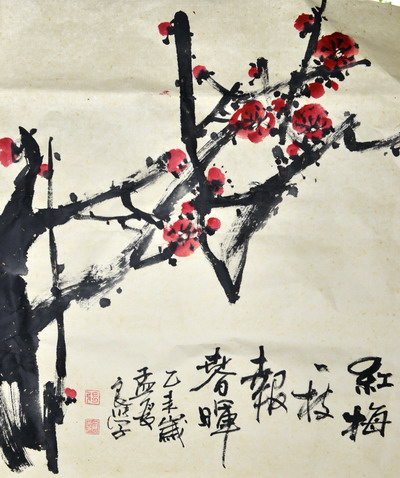 紅梅
一枝
報
春暉
乙未歲
孟夏